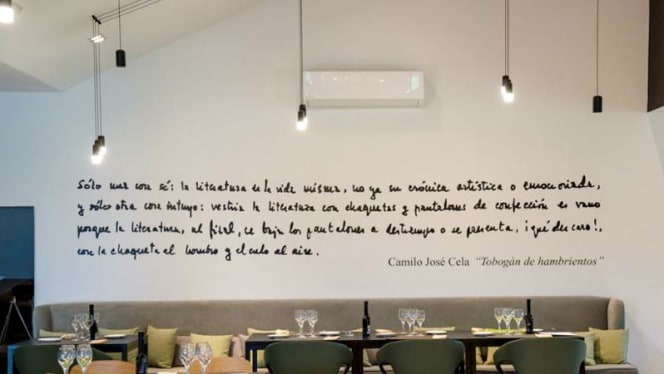 Sólo una cosa sé: la literatura es la vida misma, no ya su crónica artística o emocionada,
y sólo otra cosa intuyo: vestir la literatura con chaquetas y pantalones de confección es vano
porque la literatura, al final, se baja los pantalones a destiempo o se presenta, ¡qué descaro!,
con la chaqueta al hombro y el culo al aire.
Camilo José Cela "Tobogán de hambrientos"